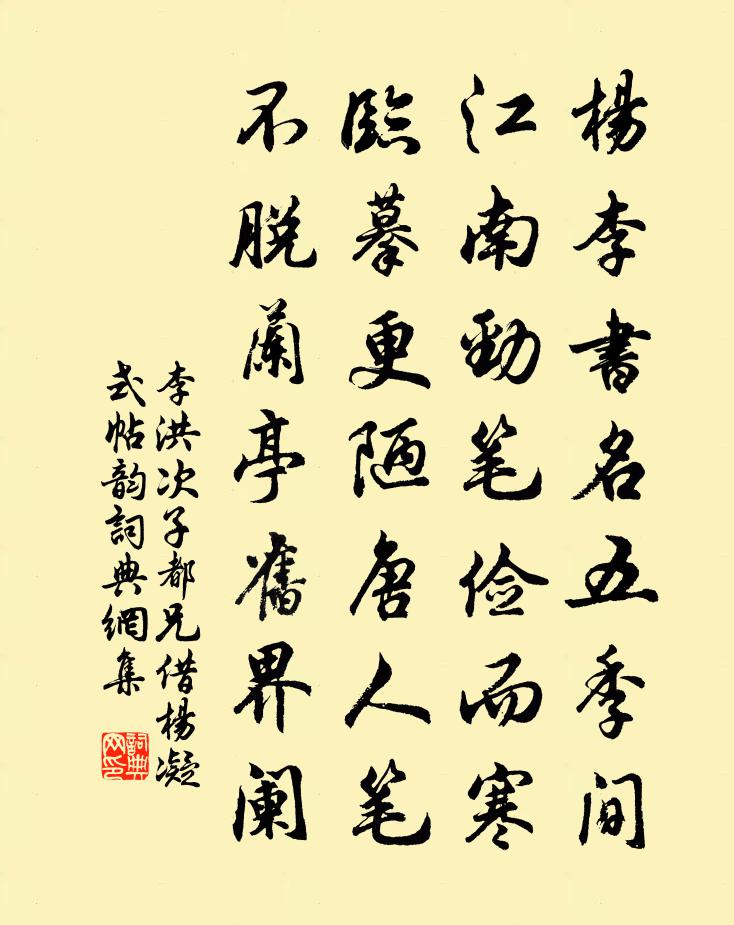 楊李書名五季间
江南勁笔俭而寒
臨摹更陋唐人笔
不脱蘭亭舊界阑
李洪次子都兄借楊凝
式帖韵詞典網集
詞典网印